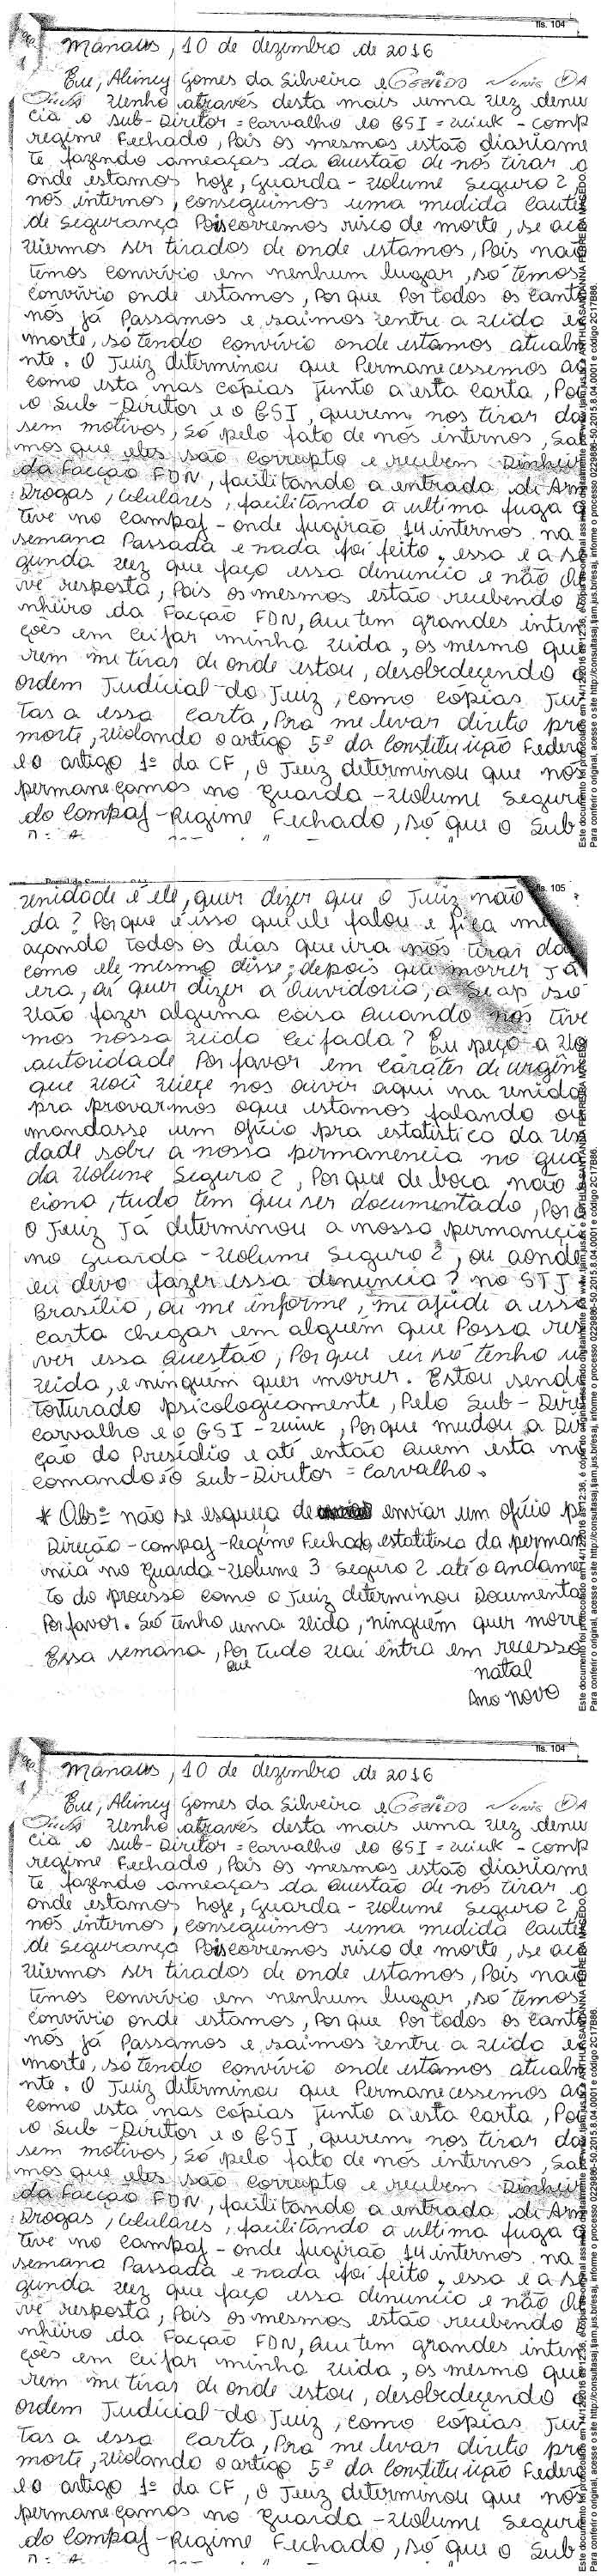 fls. 104
Manaus, 10 de dezembro de 2016
Eu, Alciney Gomes da Silveira e
venho através desta mais uma vez denu
cia o sub-Diretor = Carvalho eo GSI = - comp
regime Fechado, Pois os mesmos estão diariame
te fazendo ameaças da questão de nós tirar
onde estamos hoje, guarda-volume seguro 2,
nós internos, conseguimos uma medida caute
de segurança Pois corremos risco de morte, se aca
viermos ser tirados de onde estamos, Pois não
temos convívio em nenhum lugar, só temos
convívio onde estamos, Por que Por todos os cant
nós já Passamos e saimos entre a vida e
morte, só tendo convívio onde estamos atualm
nte. O Juiz diterminou que Permanecessemos aq
como esta nas cópias junto a esta carta, Po
o Sub-Diretor e o GSI, querem nos tirar da
sem motivos, só pelo fato de nós internos, sab
mos que eles são corrupto e recebem Dinheir
da Facção FDN, facilitando a entrada di Arm
Drogas, Celulares, facilitando a ultima fuga q
teve no Compaj-onde fugirão 14 internos na
semana Passada e nada foi feito, essa e a se
gunda vez que faço essa denuncio e não
ve resposta, Pois os mesmos estão recebendo
nheiro da Facção FDN, qui tem grandes inten
ções em ceifar minha vida, os mesmo que
rem mi tirar di onde estou, desobedeçendo
ordem Judicial do Juiz, como cópias Jun
tas a essa carta, Pra me levar direto pra
morte, violando o artigo 5º da Constituição Feder
eo artigo 1º da CF, o Juiz determinou que nós
permaneçamos no Guarda-Volumi Seguro
do Compaj-Regime Fechado, só que o Sub
fls. 105
unidade é ele, quer dizer que o Juiz não
da? Porque é isso que ele falou e fica me
açando todos os dias que ira nós tirar da
como ele mesmo disse; depois que morrer Já
era, ai quer dizer a Ouvidoria, a Seap só
vão fazer alguma coisa quando nós tive
mos nossa vida ceifada? Eu peço a vo
autoridade Por favor em caráter di urgên
que você viesse nos ouvir aqui na unida
pra provarmos oque estamos falando ou
mandasse um ofício pra estatistica da uni
dade sobre a nossa permanencia no gua
da volume Seguro 2, Porque de boca não
ciona, tudo tem que ser documentado, Por
O Juiz Já diterminou a nossa permaneci
no guarda-volumi Seguro 2, ou aonde
eu devo fazer essa denuncia? no STJ
Brasília, ou me informe, mi ajude a essa
carta chegar em alguém que Possa res
ver essa questão, Porque eu só tenho u
vida, e ninguém quer morrer. Estou send
torturado psicologicamente, Pelo Sub-Dire
Carvalho e o GSI - , Porque mudou a Dir
ção do Presídio e até então quem esta no
comando é o Sub-Diretor = Carvalho.
* Obs= não se esqueça de enviar um ofício p
Direção-compaj-Regime Fechado, estatitisca da perman
ncia no guarda-volume 3 Seguro 2 até o andame
to do processo como o Juiz determinou Documenta
Por favor. Só tenho uma vida, ninguém quer morre
Essa semana, Por que tudo vai entra em recesso
natal
Ano novo
fls. 104
Manaus, 10 de dezembro de 2016
Eu, Alciney Gomes da Silveira e
venho através desta mais uma vez denu
cia o sub-Diretor = Carvalho eo GSI = - comp
regime Fechado, Pois os mesmos estão diariame
te fazendo ameaças da questão de nós tirar
onde estamos hoje, guarda-volume seguro 2,
nós internos, conseguimos uma medida caute
de segurança Pois corremos risco de morte, se aca
viermos ser tirados de onde estamos, Pois não
temos convívio em nenhum lugar, só temos
convívio onde estamos, Por que Por todos os cant
nós já Passamos e saimos entre a vida e
morte, só tendo convívio onde estamos atualm
nte. O Juiz diterminou que Permanecessemos aq
como esta nas cópias junto a esta carta, Po
o Sub-Diretor e o GSI, querem nos tirar da
sem motivos, só pelo fato de nós internos, sab
mos que eles são corrupto e recebem Dinheir
da Facção FDN, facilitando a entrada di Arm
Drogas, Celulares, facilitando a ultima fuga q
teve no Compaj-onde fugirão 14 internos na
semana Passada e nada foi feito, essa e a se
gunda vez que faço essa denuncio e não
ve resposta, Pois os mesmos estão recebendo
nheiro da Facção FDN, qui tem grandes inten
ções em ceifar minha vida, os mesmo que
rem mi tirar di onde estou, desobedeçendo
ordem Judicial do Juiz, como cópias Jun
tas a essa carta, Pra me levar direto pra
morte, violando o artigo 5º da Constituição Feder
eo artigo 1º da CF, o Juiz determinou que nós
permaneçamos no Guarda-Volumi Seguro
do Compaj-Regime Fechado, só que o Sub
Para conferir o original, acesse o site http://consultasaj.tjam.jus.br/esaj, informe o processo 0229886-50.2015.8.04.0001 e código 2C17886.